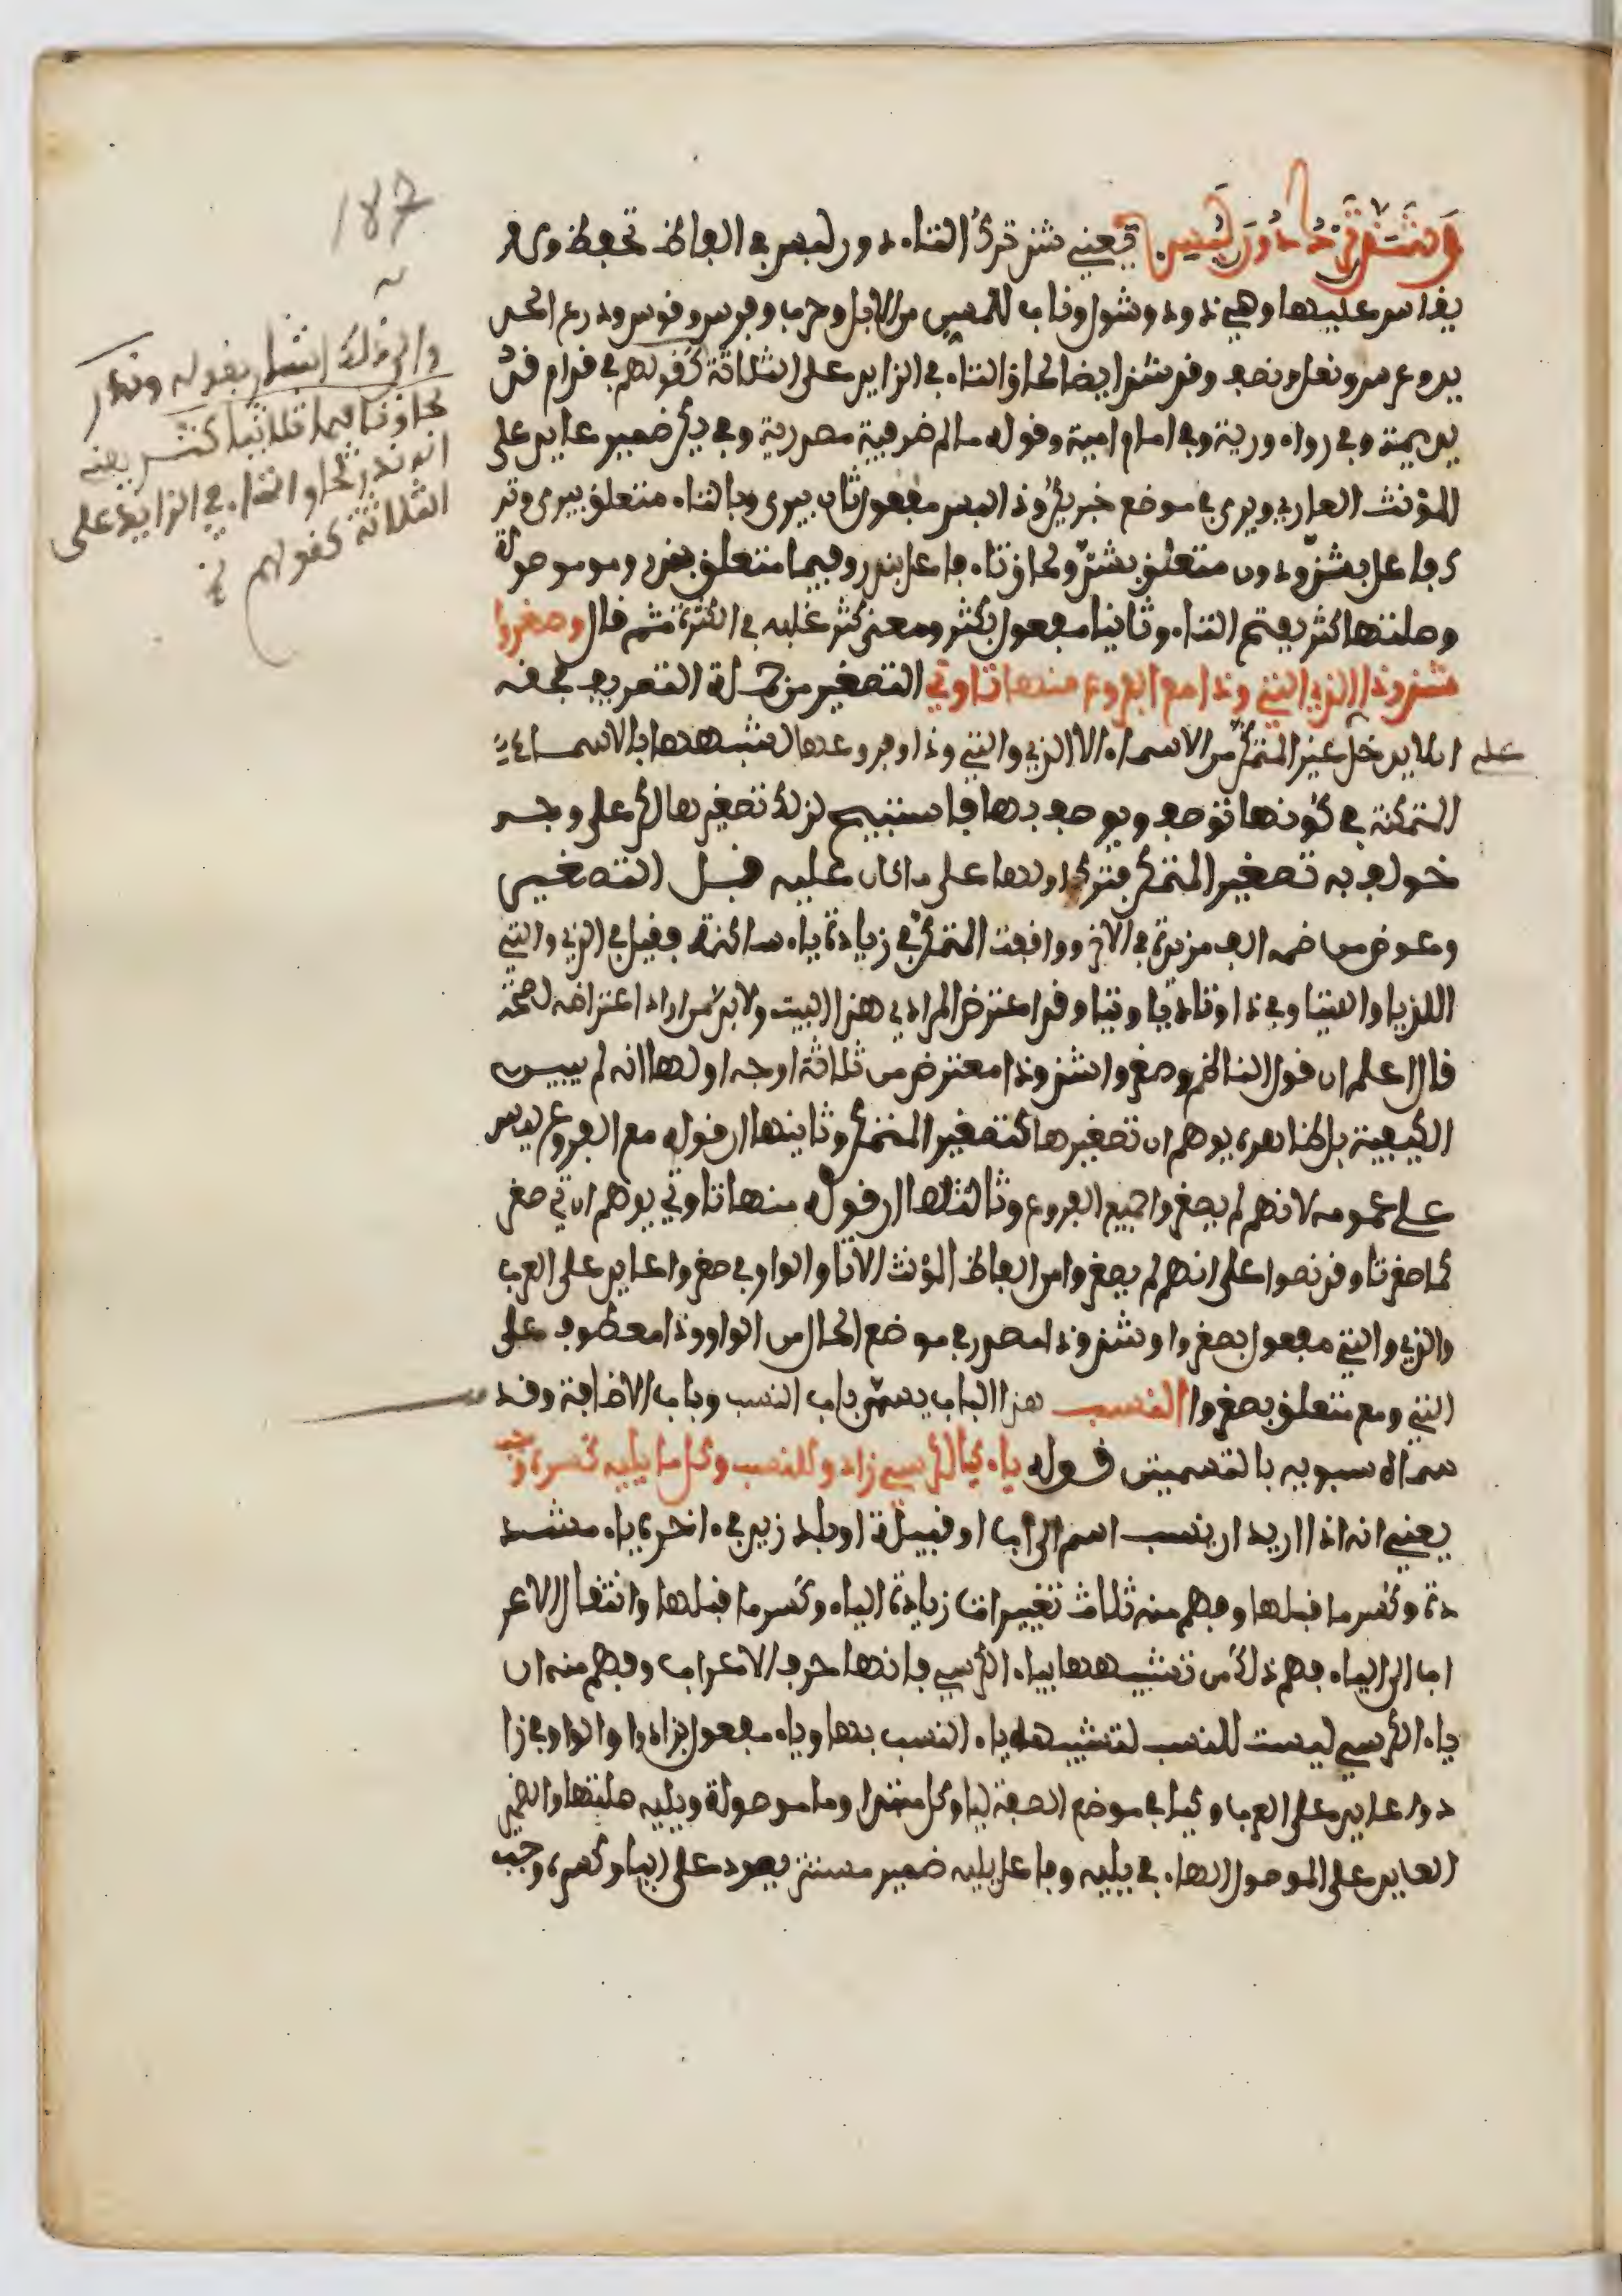 187
وشذ ترك دون لبس يعني شذ ترك التاء دون لبس في ألفاظ تحفظ ولا
يقاس عليها وهي ذود وشول وناب للمسن من الابل وحرب وفرس وقوس ودرع الحد
يد وعرس ونعل ونصف وقد شذ ايضا لحاق التاء في الزايد على الثلاثة كقولهم في قدام قد
يديمة وفي وراء ورية وفي امام اميمة وقوله ما لم ظرفية مصدرية وفي يكن ضمير عايد على
المؤنث العاري ويرى في موضع خبر يكن وذا لبس مفعول ثان بيرى وبالتاء متعلق بيرى وتر
ك فاعل بشذ ودون متعلق بشذ ولحاق تا فاعل بندر وفيما متعلق بندر وهو موصولة
وصلتها كثر بفتح الثاء وثلاثيا مفعول بكثر ومعنى كثر غلبه في الكثرة ثم قال وصغروا
شذوذا الذي التي وذا مع الفروع منها تا وتي التصغير من جملة التصريف فحقه
ان لا يدخل غير المتمكن من الاسماء الا الذي والتي وذا وفروعها لشبهها بالاسماء
علم
المتمكنة في كونها توصف ويوصف بها فاستبيح لذلك تصغيرها لكن على وجه
خولف به تصغير المتمكن فترك اولها على ما كان عليه قبل التصغير
وعوض من ضمه الف مزيدة في الاخر ووافقت المتمكن في زيادة ياء ساكنة فقيل في الذي والتي
اللذيا واللتيا وفي ذا وتا ذيا وتيا وقد اعترض المرادي هذا البيت ولابد من ايراد اعتراضه لصحته
قال اعلم ان قول الناظم وصغروا شذوذا معترض من ثلاثة اوجه اولها انه لم يبين
الكيفية بل ظاهره يوهم ان تصغيرها كتصغير المتمكن وثانيها ان قوله مع الفروع ليس
على عمومه لانهم لم يصغروا جميع الفروع وثالثها ان قوله منها تا وتي يوهم ان تي صغر
كما صغر تا وقد نصوا على انهم لم يصغروا من الفاظ المؤنث الا تا والواو في صغروا عايد على العرب
والذي والتي مفعول بصغروا وشذوذا مصدر في موضع الحال من الواو وذا معطوف على
التي ومع متعلق بصغروا النسب هذا الباب يسمى باب النسب وباب الاضافة وقد
سماه سبويه بالتسميتين قوله ياء كيا الكرسي زادوا للنسب وكل ما يليه كسره وجب
يعني انه اذا اريد ان ينسب اسم الى اب او قبيلة او بلد زيد في ءاخره ياء مشد
دة وكسر ما قبلها وفهم منه ثلاث تغييرات زيادة الياء وكسر ما قبلها وانتقال الاعر
اب الى الياء فهم ذلك من تشبيهها بياء الكرسي فانها حرف الاعراب وفهم منه ان
ياء الكرسي ليست للنسب لتشبيهه ياء النسب بها وياء مفعول بزادوا والواو في زا
دوا عايد على العرب وكيا في موضع الصفة ليا وكل مبتدا وما موصولة ويليه صلتها والضمير
العايد على الموصول الهاء في يليه وفاعل يليه ضمير مستتر يعود على اليا وكسره وجب
والى ذلك اشار بقوله وندر
لحاق تا فيما ثلاثيا كثر يعني
انه ندر لحاق التاء في الزايد على
الثلاثة كقولهم